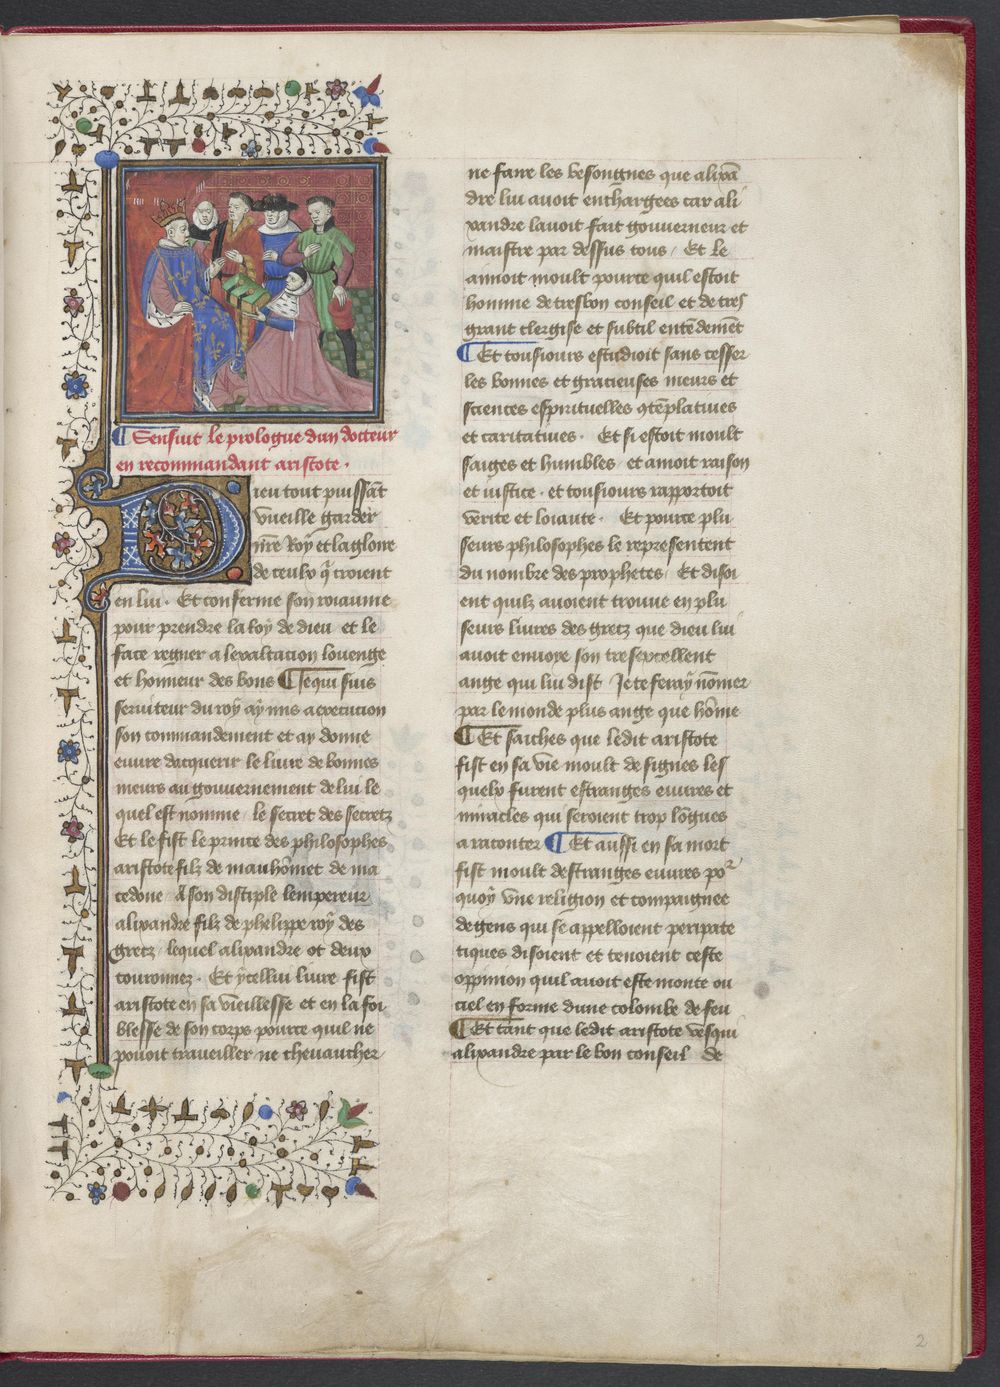 Sensuit le prologue dun docteur
en recommandant aristote .
Dieu tout puissāt
vueille garder
nr̄e Roy et la gloire
de ceulx q̄ croient
en lui . Et conferme son roiaume
pour prendre la loy de dieu et le
face regner a lexaltacion louenge
et honneur des bons ¶ Ie qui suis
seruiteur du roy ay mis a execucion
son commandement et ay donne
euure dacquerir le liure de bonnes
meurs au gouuernement de lui le
quel est nomme le secret des secretz
Et le fist le prince des philosophes
aristote filz de mauhōmet de ma
cedone A son disciple lempereur
alixandre filz de phelippe roy des
grecz lequel alixandre ot deux
couronnez . Et ycellui liure fist
aristote en sa vieillesse et en la foi
blesse de son corps pource quil ne
pouoit traueiller ne cheuaucher
ne faire les besongnes que alixā
dre lui auoit enchargees car ali
xandre lauoit fait gouuerneur et
maistre par dessus tous / Et le
amoit moult pource quil estoit
homme de tresbon conseil et de tres
grant clergise et subtil entēdemēt
¶ Et tousiours estudioit sans cesser
les bonnes et gracieuses meurs et
sciences espirituelles 9tēplatiues
et caritatiues . Et si estoit moult
saiges et humbles et amoit raison
et iustice . et tousiours rapportoit
verite et loiaute . Et pource plu
seurs philosophes le representent
du nombre des prophetes / Et disoi
ent quilz auoient trouue en plu
seurs liures des grecz que dieu lui
auoit enuoye son tresexcellent
ange qui lui dist Ie te feray nōmer
par le monde plus ange que hōme
¶ Et saiches que ledit aristote
fist en sa vie moult de signes les
quelx furent estranges euures et
miracles qui seroient trop lōgues
a raconter ¶ Et aussi en sa mort
fist moult destranges euures por
quoy vne religion et compaignee
de gens qui se appelloient peripate
tiques disoient et tenoient ceste
oppinion quil auoit este monte ou
ciel en forme dune colombe de feu
¶ Et tant que ledit aristote vesqui
alixandre par le bon conseil de
2